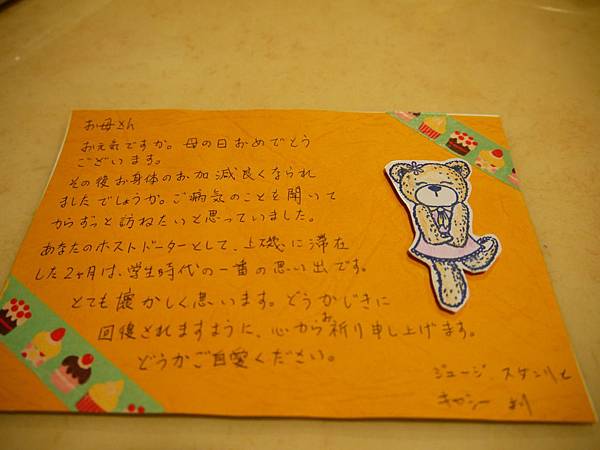 お母さん
お元気ですか。母の日おめでとう
ございます。
その後お身体のお加減良くなられ
ましたでしょうか。ご病気のことを聞いて
からずっと訪ねたいと思っていました。
あなたのホストドーターとして、上磯に滞在
した2ヶ月は、学生時代の一番の思い出です。
とても懐かしく思います。どうかじきに
回復されますように、心からお祈り申し上げます。
どうかご自愛ください。
ジョージ、スタンリと
キャシー より